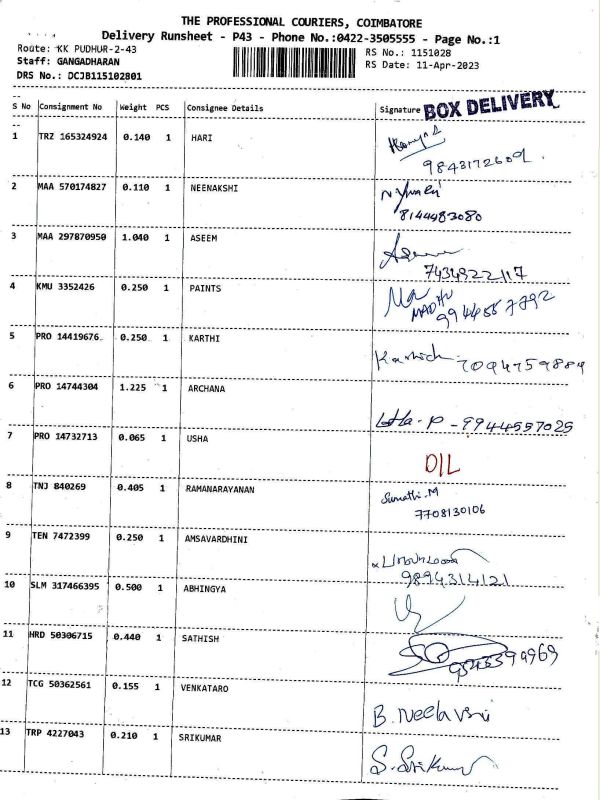 THE PROFESSIONAL COURIERS, COIMBATORE
Delivery Runsheet - P43 - Phone No.:0422-3505555 - Page No.:1
Route: KK PUDHUR-2-43
RS No.: 1151028
Staff: GANGADHARAN
RS Date: 11-Apr-2023
DRS No.: DCJB115102801
S No Consignment No Weight PCS Consignee Details Signature BOX DELIVERY
1 TRZ 165324924 0.140 1 HARI
2 MAA 570174827 0.110 1 NEENAKSHI
8144483080
3 MAA 297870950 1.040 1 ASEEM
4 KMU 3352426 0.250 1 PAINTS
MADHU
5 PRO 14419676 0.250 1 KARTHI
6 PRO 14744304 1.225 1 ARCHANA
P - 9944557025
7 PRO 14732713 0.065 1 USHA
DIL
8 TNJ 840269 0.405 1 RAMANARAYANAN
Sumathi.M
7708130106
9 TEN 7472399 0.250 1 AMSAVARDHINI
9894314121
10 SLM 317466395 0.500 1 ABHINGYA
11 HRD 50306715 0.440 1 SATHISH
12 TCG 50362561 0.155 1 VENKATARO
B. Neelavni
13 TRP 4227043 0.210 1 SRIKUMAR
S. Srikumar